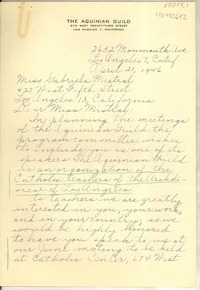 THE AQUINIAN GUILD
LOS ANGELES 7, CALIFORNIA
2632 Monmouth Ave.
Los Angeles 7, Calif.
April 21, 1946
Miss Gabriela Mistral
927 West Fifth Street
Los Angeles 13, California
Dear Miss Mistral,
In planning the meetings
of the Aquinian Guild the
program committee wishes
to include you as one of its
speakers. The Aquinian Guild
is an organization of the
Catholic teachers of the
of Los Angeles.
As teachers we are greatly
interested in you, your work,
and in your country, so we
would be highly honored
to have you speak to us at
our June meeting to be held
at Catholic Center, 634 West